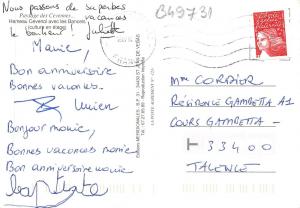 Nous passons de superbes
vacances
le bonheur! Juliette
Paysage des Cévennes
Hameau Cévenol avec les Bancels
(culture en étage)
849731
Marie,
Bon anniversaire
Bonnes vacances.
Bonjour marie,
Bonnes vacances marie
Bon anniversaire marie
baptiste
Mme CORDIER
RÉSIDENCE GAMBETTA A1
COURS GAMBETTA
T 33400
TALENCE